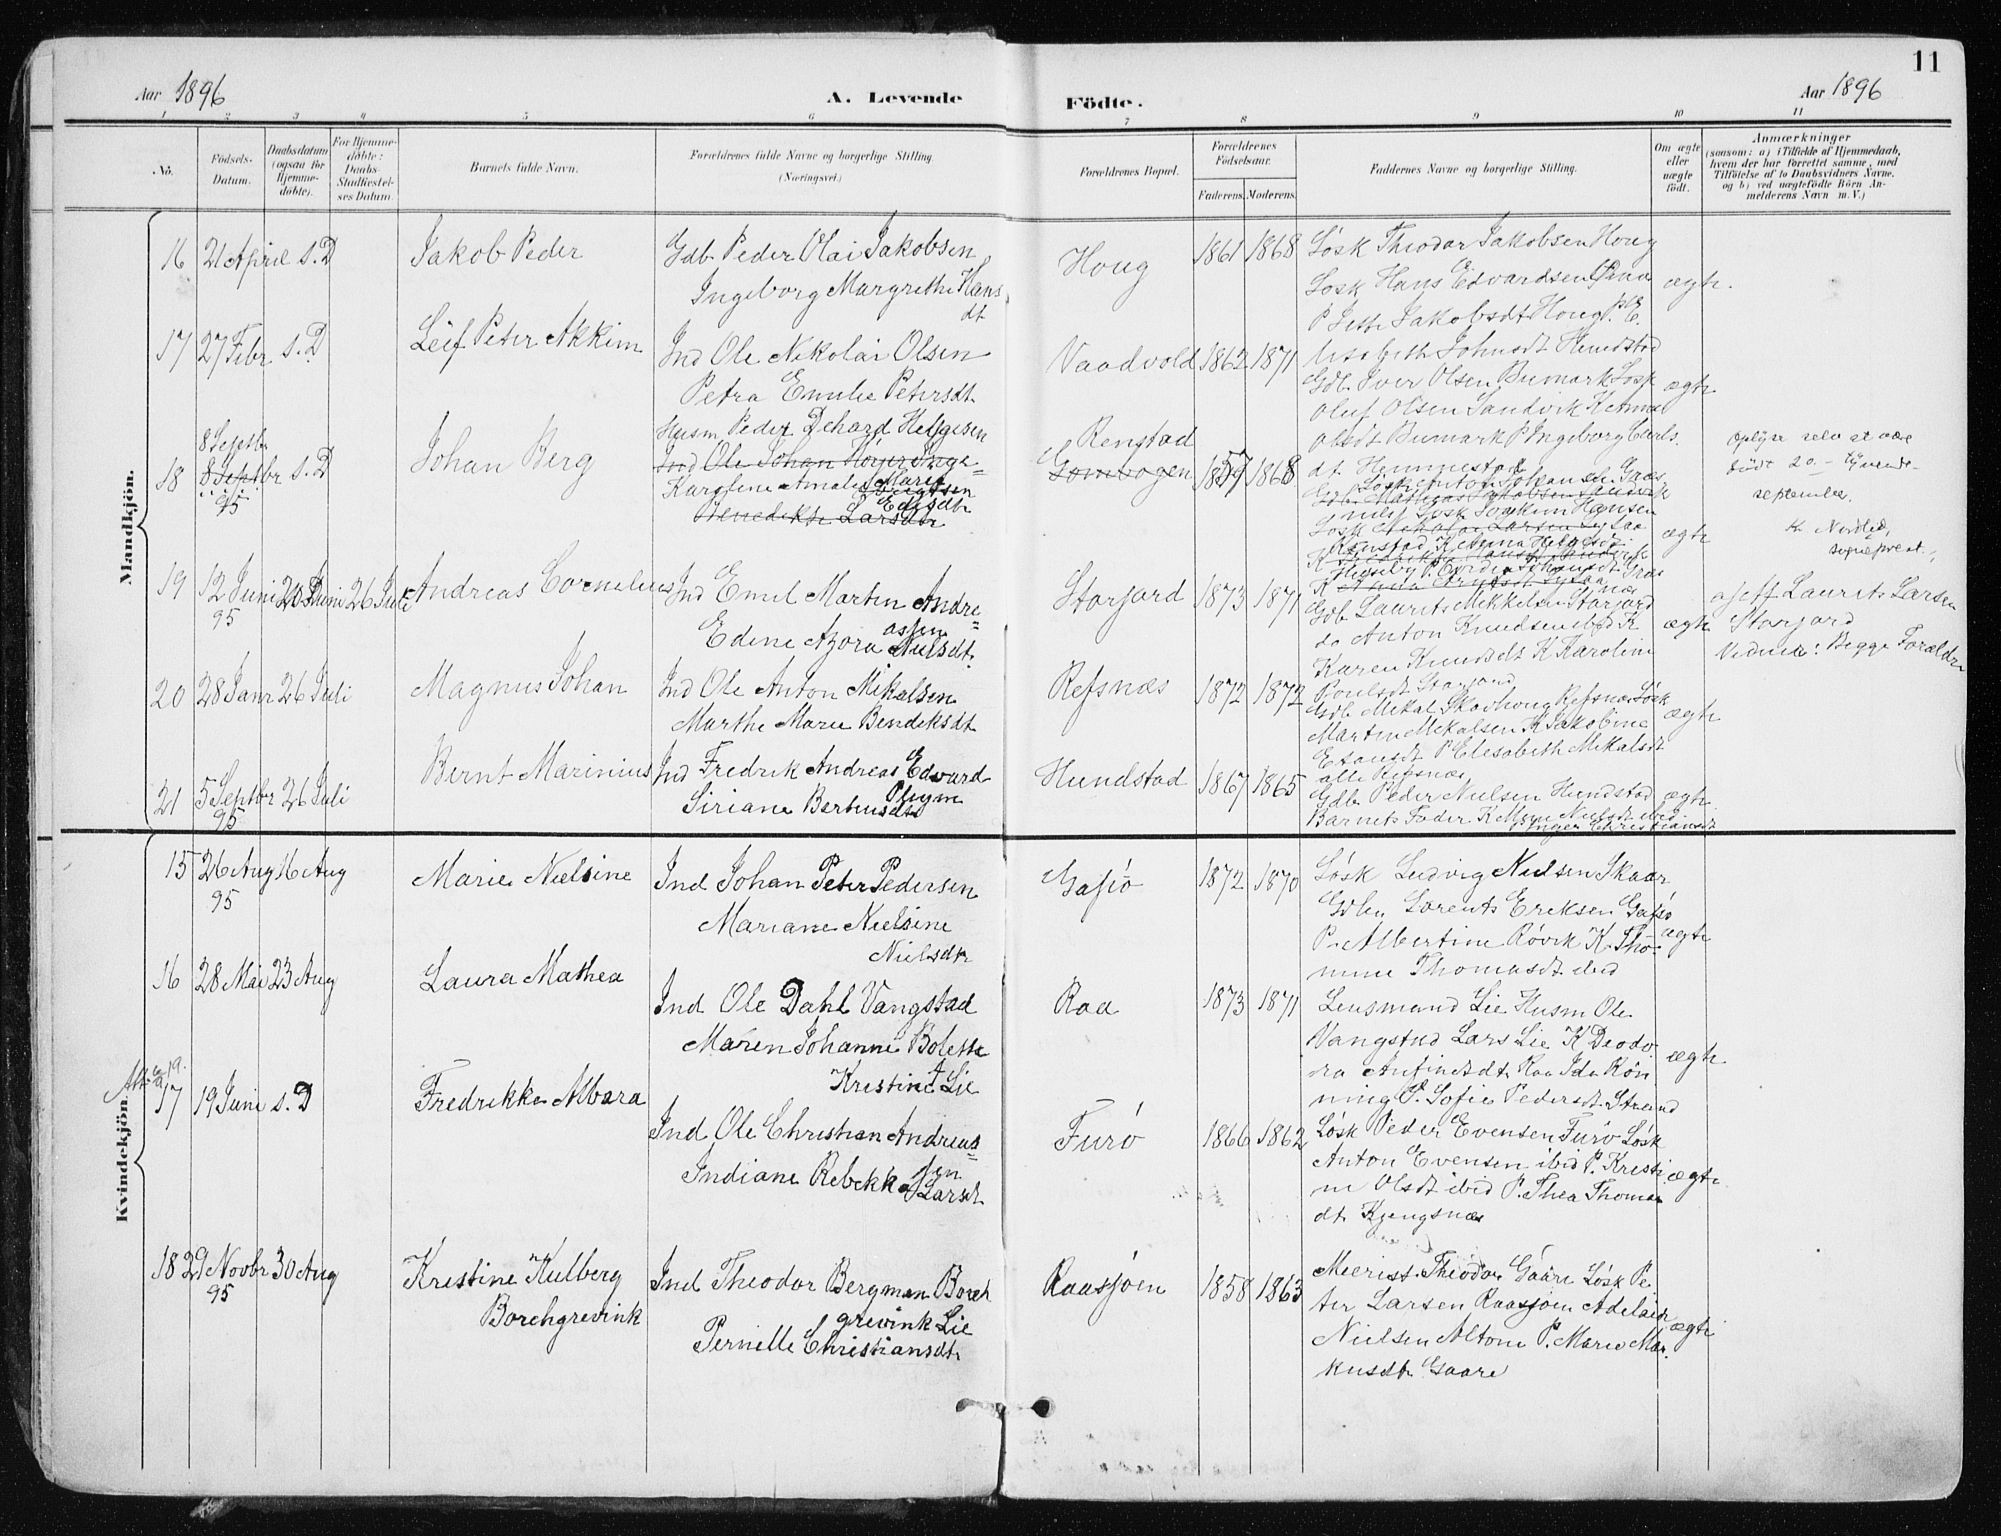 11
Aar 1896
A. Levende
Födte.
Aar 1896
1 2 3 4 5 6 7 8 9 10 11
No.
Födsels-Datum.
Daabsdatum (ogsaa for Hjemme-döbte).
For Hjemme-döbte: Daabs-Stadfæstel-ses Datum
Barnets fulde Navn.
Forældrenes fulde Navne og borgerlige Stilling. (Næringsvei.)
Forældrenes Bopæl.
Forældrenes Födselsaar.
Faderens. Moderens.
Faddernes Navne og borgerlige Stilling.
Om ægte eller uægte födt.
Anmærkninger
(saasom: a) i Tilfælde af Hjemmedaab, hvem der har forrettet samme, med Tilföielse af to Daabsvidners Navne. og b) ved uægtefödte Börn An-melderens Navn m. V.)
Mandkjön.
16 21 April s. D Jakob Peder
Gdb Peder Olai Jakobsen
Ingeborg Margrethe Hans
dt
Houg 1861 1868
Løsk Theodor Jakobsen Houg
Løsk Hans Edvardsen
P Jette Jakobsdt Houg P. E.
ægte
17 27 Febr s. D Leif Peter Akkim
Ind Ole Nikolai Olsen
Petra Emelie Petersdt
Vaadvold 1862 1871
Elisabeth Johnsdt Hundstad
Gdb Iver Olsen Bumark Løsk
Oluf Olsen Sandvik K Anna
Olsdt Bumark P Ingeborg Carls
dt Hemmestad
ægte
18 8 Septbr 8 Septbr s. D
95
Johan Berg
Husm Peder Dehard Helgesen
Ind Ole Johan Høyer Inge
Karoline Amalie Marie
Brigtsen
Edisdtr
Benedikte Larsdtr
Renstad
1857 1868
Løsk Anton Johansen Gaas
Gdb Mathias Jakobsen Sandvik
Løsk Joakim Hansen
Renstad K Anna Helgesdt
ægte
oplyse selv at være
født 20. - tyvende -
september.
K. Nordlid,
sogneprest.
19 12 Juni 20 Juni 26 Juli
95
Andreas Cornelius
Ind Emil Martin Andre=
assen
Edine Azora Nilsdt.
Storjord 1873 1871
Gdb Laurits Mikkelsen Storjord
do Anton Knudsen ibid K
Karen Knudsdt K Karoline
Poulsdt Storjord
ægte
af Jeff Laurits Larsen
Storjord
Vidner: Begge Forældre
20 28 Janr 26 Juli Magnus Johan
Ind Ole Anton Mikalsen
Marthe Marie Bendiksdt
Refsnæs 1872 1872
Gdb Mekal Skavhoug Refsnæs Løsk
Martin Mekalsen K Jakobine
P Elesabeth Mikalsdt
alle Refsnæs
ægte
21 5 Septbr 26 Juli
95
Bernt Marinius
Ind Fredrik Andreas Edvard
Plugm
Siriane Berteusdt
Hundstad 1867 1865
Gdb Peder Nielsen Hundstad
Barnets Fader K Nielsdt ibid
Inger Christiansdt
ægte
Kvindekjön.
15 26 Aug 16 Aug
95
Marie Nielsine
Ind Johan Peter Pedersen
Mariane Nielsine
Nielsdtr
Gafsø 1872 1870
Løsk Ludvig Nielsen Skaar
Gdbr Lorents Eriksen Gafsø
P. Albertine Røvik K Tho=
mine Thomasdt ibid
ægte
16 28 Mai 23 Aug Laura Mathea
Ind Ole Dahl Vangstad
Maren Johanne Bolette
Kristine Lie
Raa 1873 1871
Lensmand Lie Husm Ole
Vangstad Lars Lie K Deodo
ra Anfindsdt Raa Ida Røn
ning P. Sofie Pedersdt Strand
ægte
17 19 Juni s. D Fredrikke Albara
Ind Ole Christian Andreas=
sen
Indiane Rebekka Larsdt
Furø 1866 1862
Løsk Peder Evensen Furø Løsk
Anton Evensen ibid P. Kristi
ne Olsdt ibid P. Thea Thomas
dt Kjengsnæs
ægte
18 29 Novbr 30 Aug
95
Kristine Kulberg
Borchgrevink
Ind Theodor Bergman Borch
grevink Lie
Pernille Christiansdt
Raasjøen 1858 1863
Theodor Gaare Løsk Pe
ter Larsen Raasjøen Adelaide
Nielsen Altone P. Marie Mar
kusdt Gaare
ægte